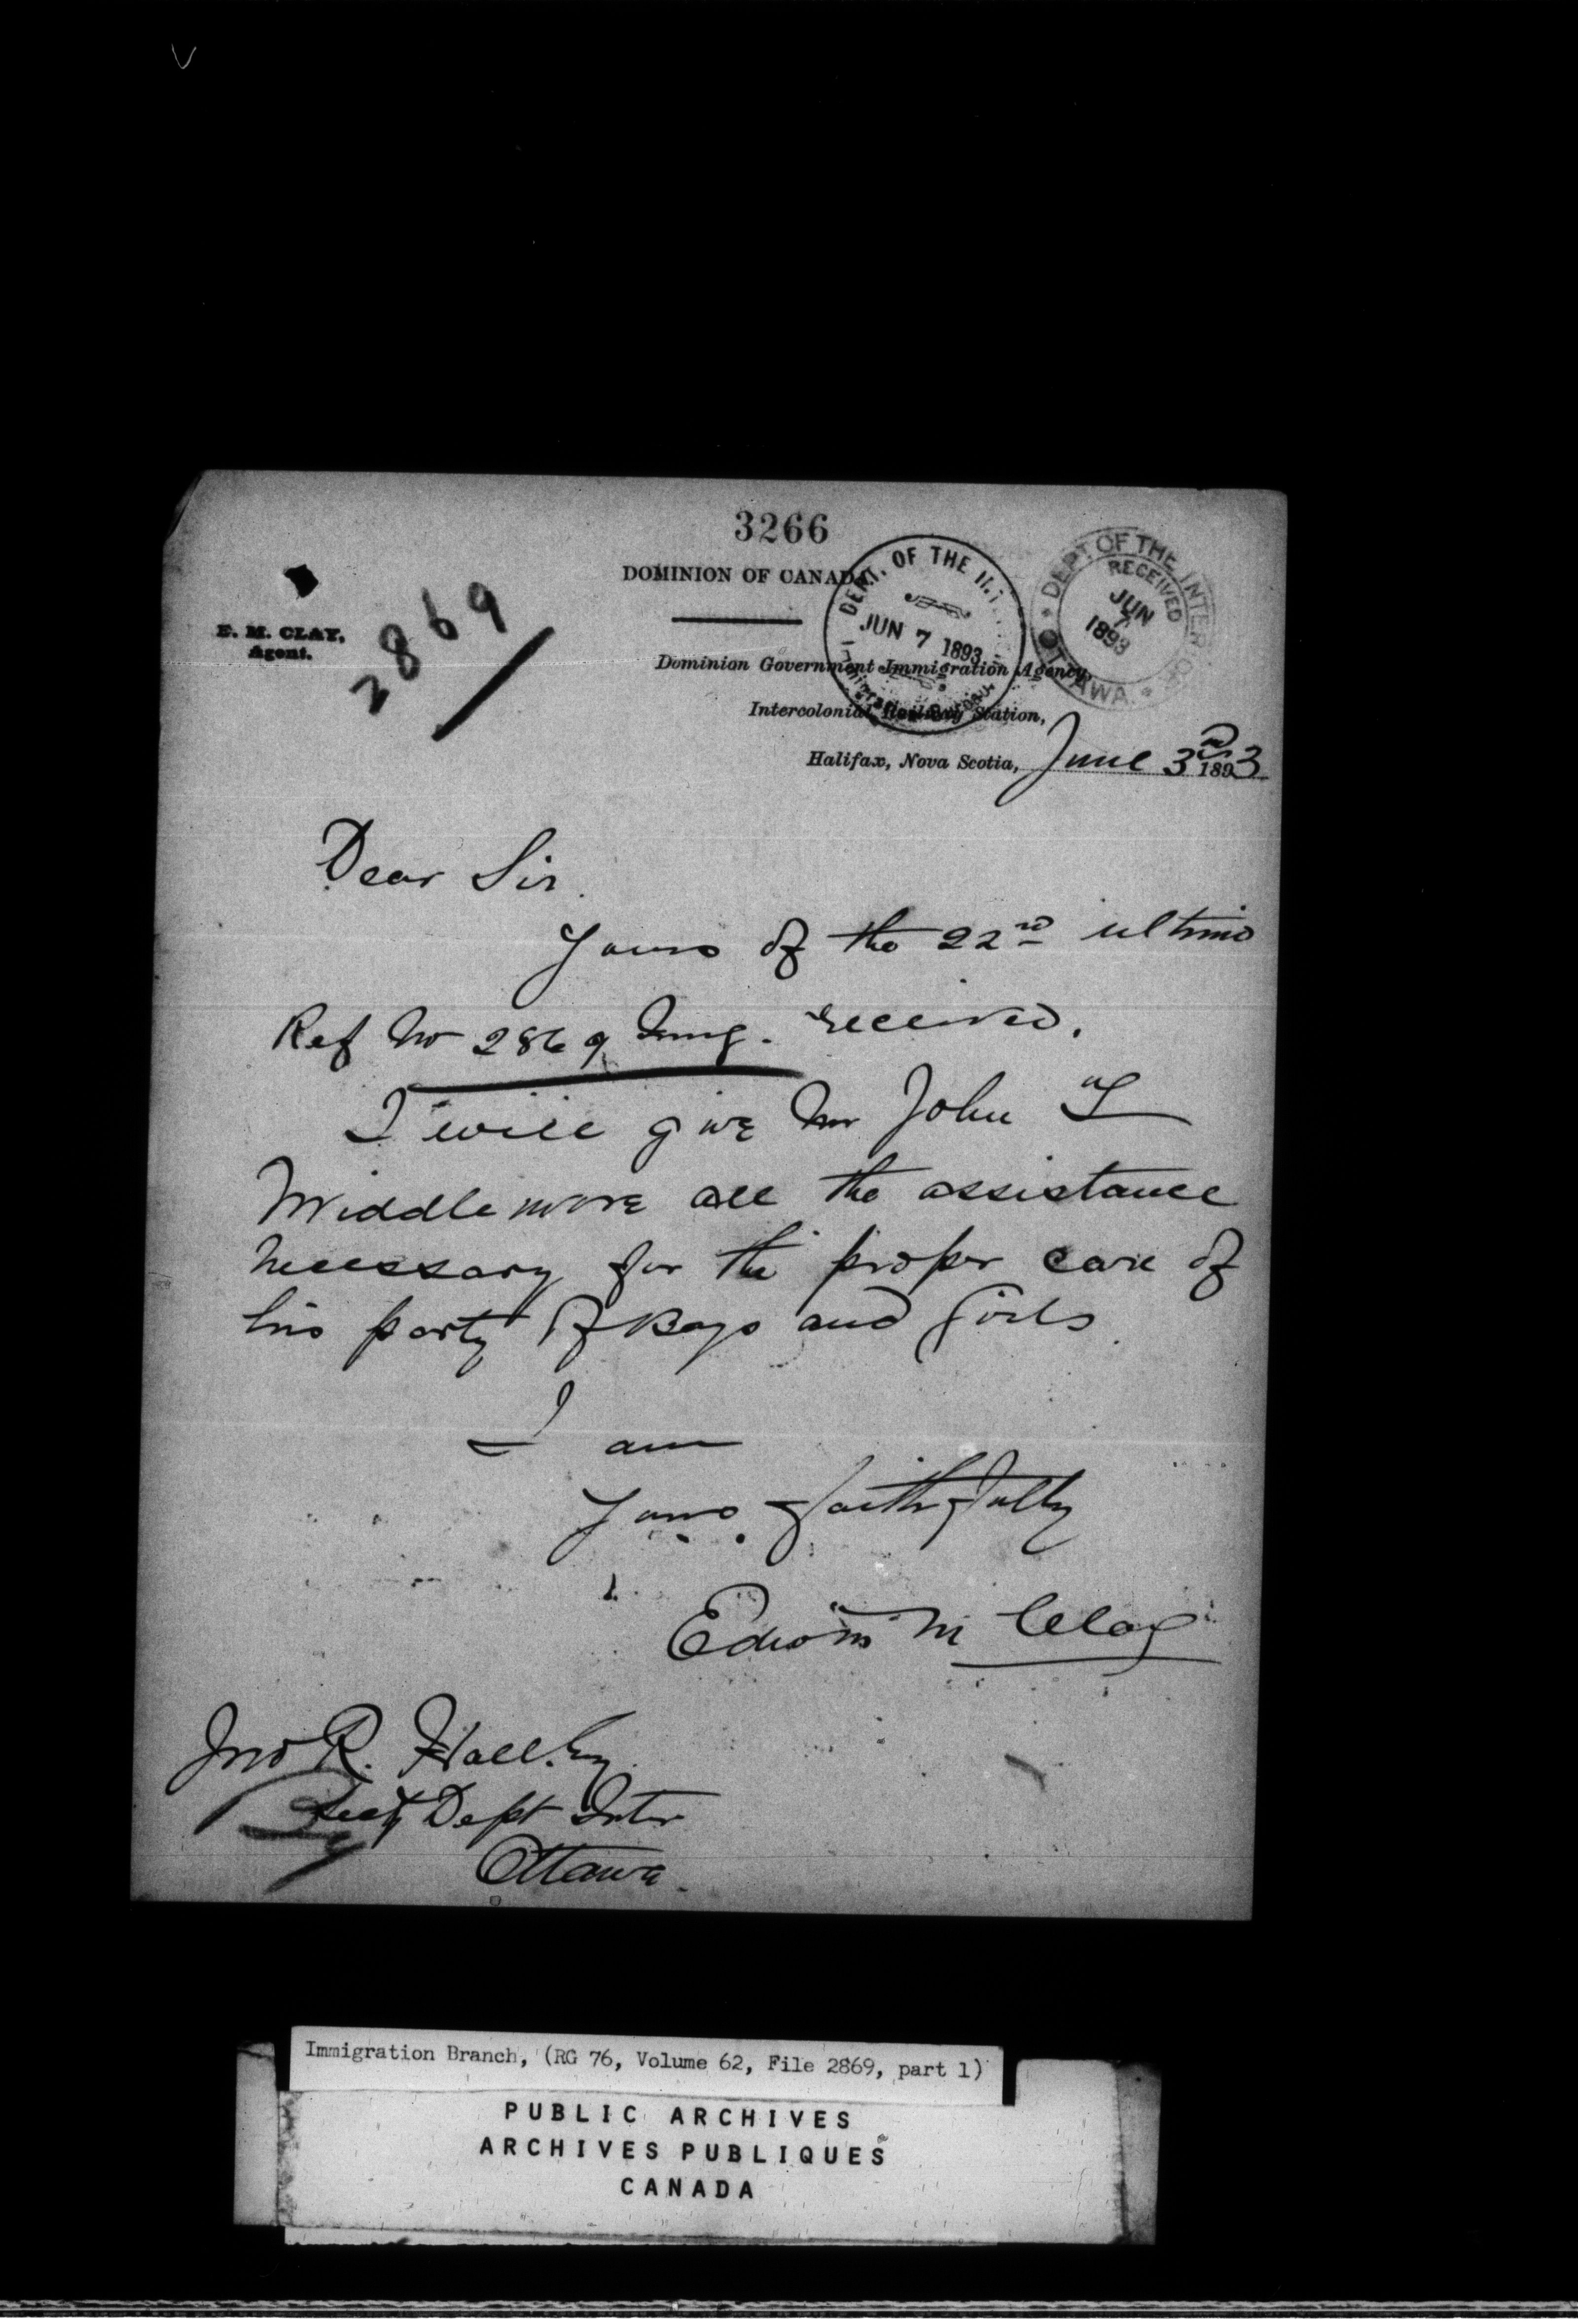 3266
DOMINION OF CANADA.
E. M. CLAY,
Agent.
2869
DEPT. OF THE INT
JUN 7 1893
DEPT. OF THE INTERIOR
RECEIVED
JUN
7
1893
OTTAWA
Dominion Government Immigration Agency,
Intercolonial Railway Station,
Halifax, Nova Scotia, June 3rd 1893
Dear Sir.
Yours of the 22nd ultimo
Ref No 2869 Immg. received.
I will give Mr John T
Middlemore all the assistance
necessary for the proper care of
his party of Boys and Girls.
I am
Yours faithfully
Edwin M Clay
Jno R. Hall. Esq
Secty Dept Inter
Ottawa.
Immigration Branch, (RG 76, Volume 62, File 2869, part 1)
PUBLIC ARCHIVES
ARCHIVES PUBLIQUES
CANADA